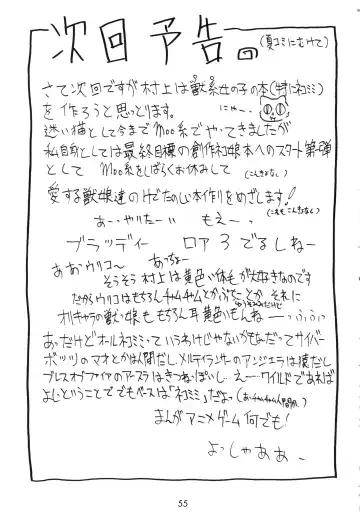 次回予告の(夏コミにむけて)
さて次回ですが村上は獣系女の子の本(特にネコミミ)
を作ろうと思っとります。
にゃー、
迷い猫として今までMoo系でやってきましたが
私自身としては最終目標の創作ネコ娘本へのスタート第一弾
として Moo系をしばらくお休みして
(こんきょなし)
愛する獣娘達のけだものい本作りをめざします!
(これもこんきょなし)
あー、やりたーい もえーー、
ブラッディー ロア3 でるしねー
ああウリコ〜 あっちょー
そうそう 村上は黄色い体毛が大好きなのです
だからウリコはもちろんチャムチャムとかぶちことか それに
オリキャラの獣っ娘も もちろん耳黄色いもんねー―っふふっ
あっだけどオールネコミミっていうわけじゃないかもなだってサイバー
ボッツのマオとかは人間だし、メルティランサーのアンジェラは猿だし
ブレスオブファイアのアースラはきつねっぽいし えーワイルドであれば
よしということで でもベースは「ネコミミ」だよっ
まんがアニメゲーム何でも!
よっしゃああー
55